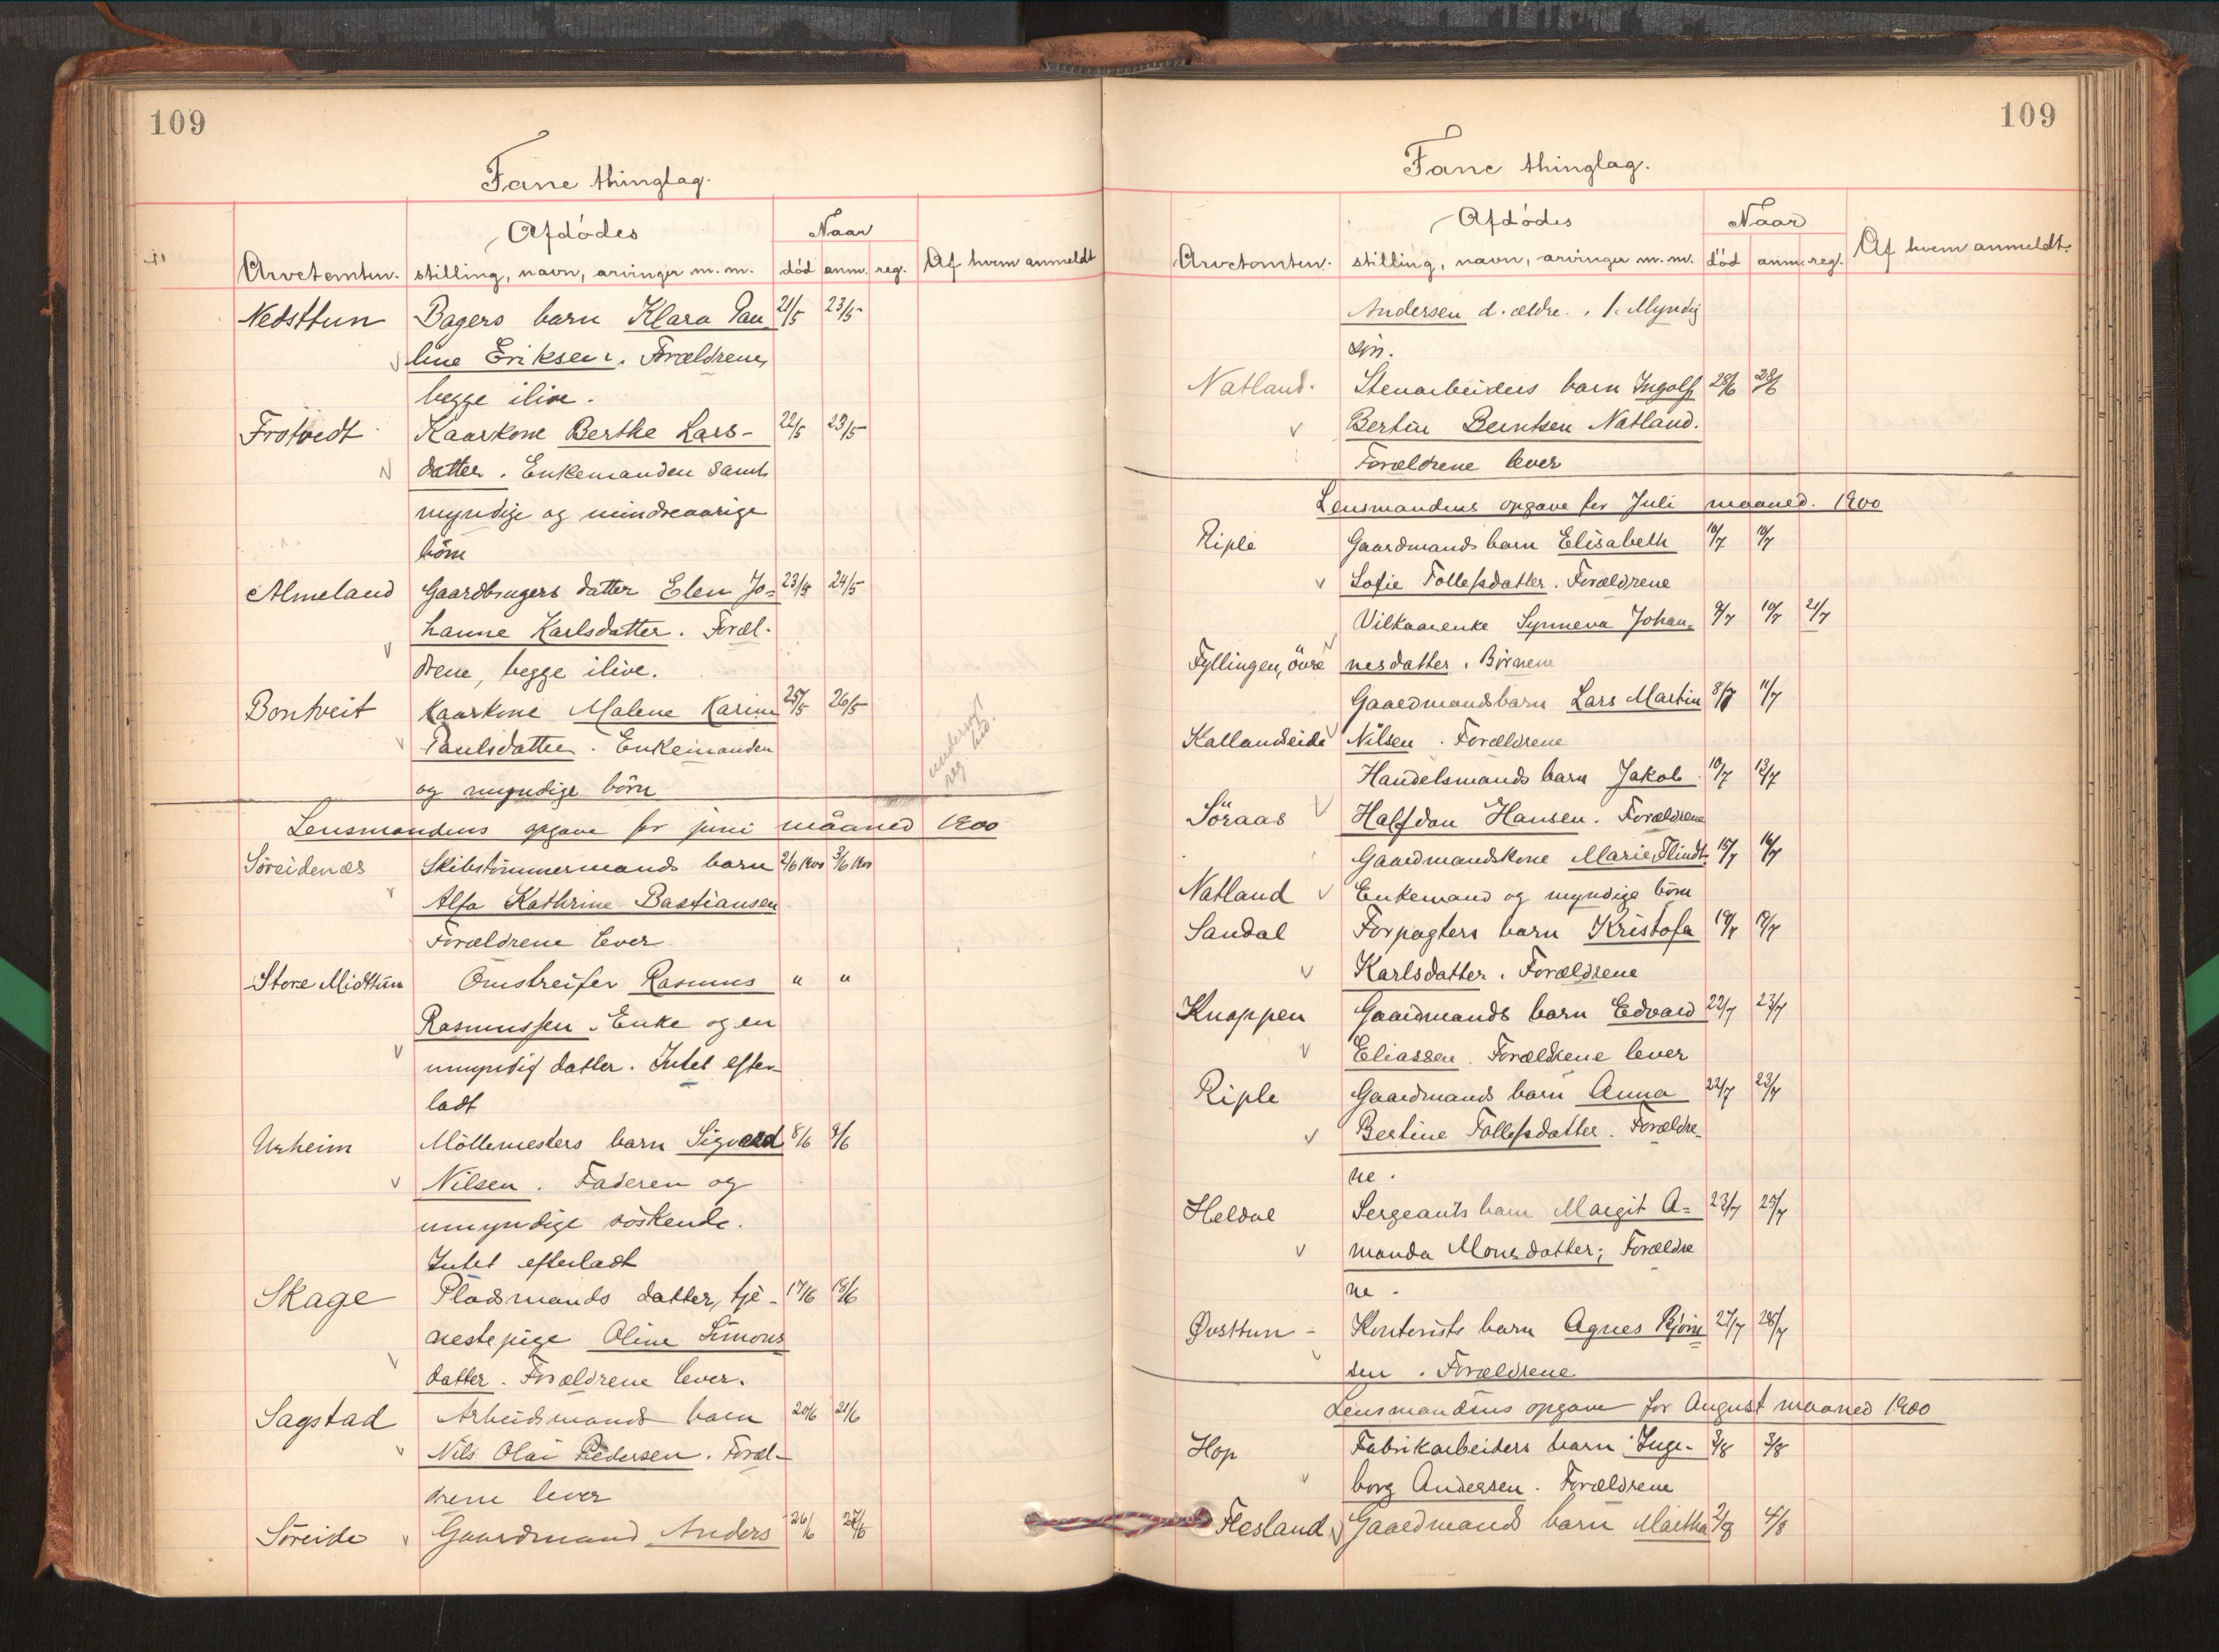 109
Fane thinglag.
Afdödes
Naar
Arvetomten. stilling, navn, arvinger m. m. död anm. reg. Af hvem anmeldt
Nedsttun Bagers barn Klara Pau 21/5 23/5
line Eriksen. Forældrene,
begge ilive.
Frotvedt Kaarkone Berthe Lars- 22/5 23/5
datter. Enkemanden samt
myndige og mindreaarige
börn
Almeland Gaardbrugers datter Elen Jo= 23/5 24/5
hanne Karlsdatter. Foræl-
drene, begge ilive.
Bontveit Kaarkone Malene Karine 25/5 26/5
Paulsdatter. Enkemanden
og myndige börn
Lensmandens opgave for juni måaned 1900
Söreidenæs Skibstömmermands barn 2/6 1900 3/6 1900
Alfa Kathrine Bastiansen
Forældrene lever
Store Midttun Omstreifer Rasmus " "
Rasmussen. Enke og en
umyndig datter. Intet efter-
ladt
Urheim Möllemesters barn Sigvard 8/6 9/6
Nilsen. Faderen og
umyndige söskende.
Intet efterladt
Skage Pladsmands datter, tje- 17/6 18/6
nestepige Oline Simons
datter. Forældrene lever.
Sagstad Arbeidsmands barn 20/6 21/6
Nils Olai Pedersen. Foræl-
drene lever
Söreide Gaardmand Anders 26/6 27/6
109
Fane thinglag.
Afdödes
Naar
Arvetomten. stilling, navn, arvinger m. m. död anm. reg. Af hvem anmeldt.
Andersen d. ældre. 1. Myndig
sön.
Natland. Stenarbeiders barn Ingolf 28/6 28/6
Bertin Berntsen Natland.
Forældrene lever
Lensmandens opgave for Juli maaned. 1900
Riple Gaardmands barn Elisabeth 10/7 10/7
Sofie Tollefsdatter. Forældrene
Vilkaarenke Synneva Johan= 9/7 10/7 21/7
Fyllingen, övre nesdatter. Börnene
Gaardmandsbarn Lars Martin 8/7 11/7
Kallandseide Nilsen. Forældrene
Handelsmands barn Jakob 10/7 13/7
Söraas Halfdan Hansen. Forældrene
Gaardmandskone Marie Flindt. 15/7 16/7
Natland Enkemand og myndige börn
Sandal Forpagters barn Kristofa 19/7 19/7
Karlsdatter. Forældrene
Knappen Gaardmands barn Edvard 22/7 23/7
Eliassen. Forældrene lever
Riple Gaardmands barn Anna 22/7 23/7
Bertine Tollefsdatter. Forældre-
ne.
Heldal Sergeants barn Margit A= 23/7 25/7
manda Monsdatter; Forældre
ne.
Øvsttun - Kontorists barn Agnes Björn 27/7 28/7
sen. Forældrene
Lensmandens opgave for August maaned 1900
Hop Fabrikarbeiders barn Inge- 3/8 3/8
borg Andersen. Forældrene
Flesland Gaardmands barn Martha 2/8 4/8